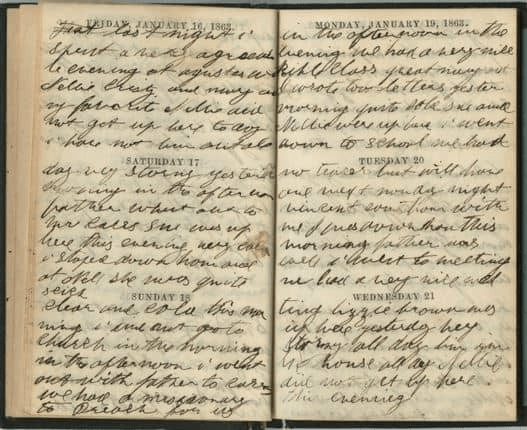 FRIDAY, JANUARY 16, 1863.
last night i
spent a very agreeab
le evening at
Nellie and mary
my favorite Nellie did
not got up here to day
i have not been
SATURDAY 17
day very stormy yesterd
in the afternoon
father went out to
she was up
here this evening very cold
i staed down home
at she was quite
sick
SUNDAY 18
clear and cold this mor
ning i did not go to
church in the morning
in the afternoon i went
out with father to
we had a missionary
to preach for us
MONDAY, JANUARY 19, 1863.
in the afternoon in the
evening we had a very nice
bible class great many out
i wrote two letters yester
morning quite cold she and
Nellie were up here i went
down to school we had
TUESDAY 20
no teacer but will have
one next monday night
vincent came home with
me this
morning father was
well i went to meeting
we had a very nice mee
WEDNESDAY 21
ting lizzie brown was
up here yesterday very
stormy all day
house all day Nellie
did not get up here
this evening